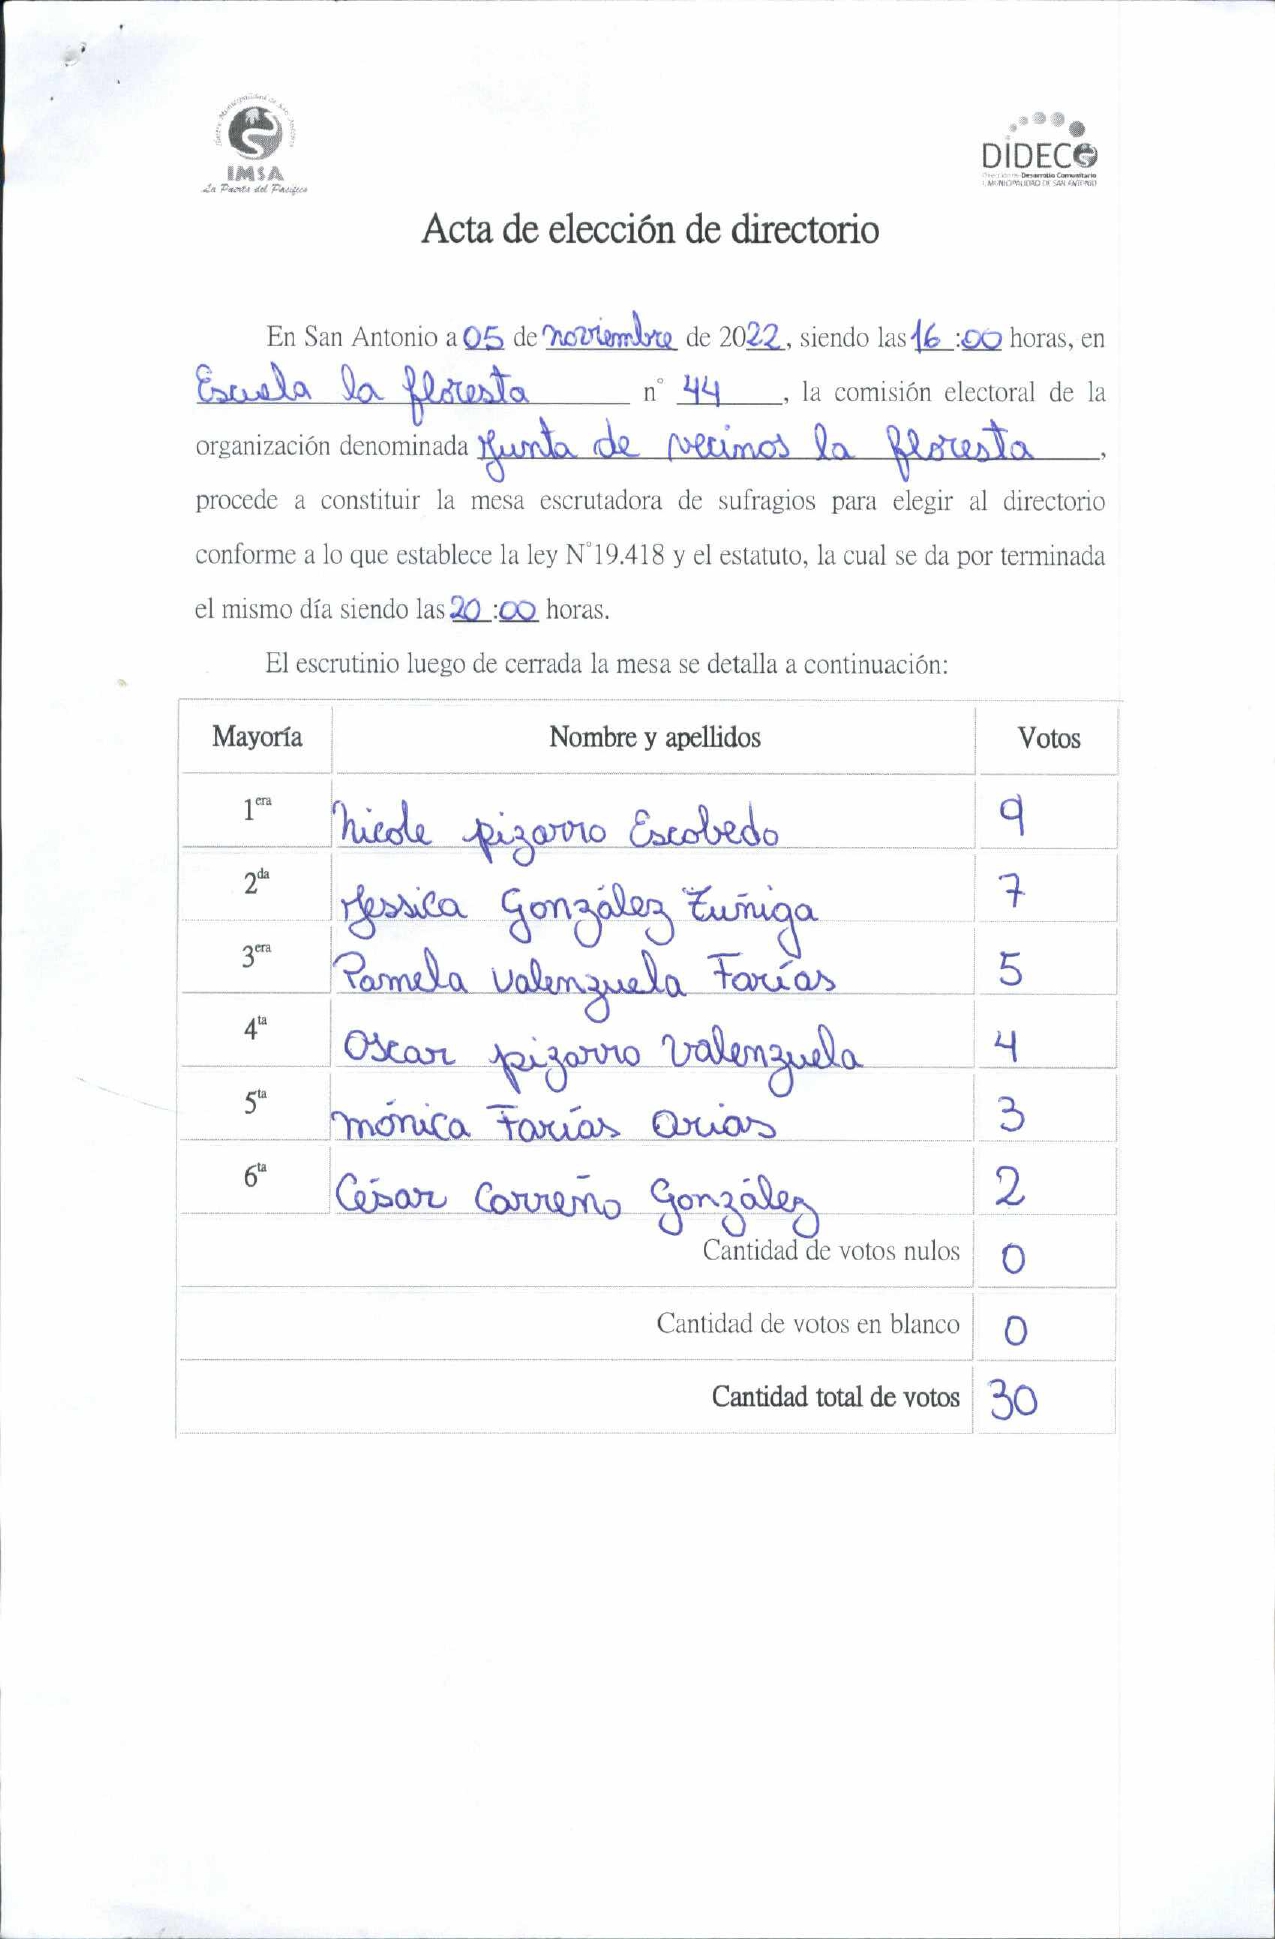 Ilustre Municipalidad de San Antonio
IMSA
La Puerta del Pacífico
DIDECO
Dirección de Desarrollo Comunitario
I. MUNICIPALIDAD DE SAN ANTONIO
Acta de elección de directorio
En San Antonio a 05 de noviembre de 2022, siendo las 16:00 horas, en
Escuela la floresta n° 44, la comisión electoral de la
organización denominada Junta de vecinos la floresta,
procede a constituir la mesa escrutadora de sufragios para elegir al directorio
conforme a lo que establece la ley N°19.418 y el estatuto, la cual se da por terminada
el mismo día siendo las 20:00 horas.
El escrutinio luego de cerrada la mesa se detalla a continuación:
Mayoría Nombre y apellidos Votos
1era Nicole pizarro Escobedo 9
2da Jessica González Zuñiga 7
3era Pamela Valenzuela Farías 5
4ta Oscar pizarro Valenzuela 4
5ta Mónica Farías Arias 3
6ta César Carreño González 2
Cantidad de votos nulos 0
Cantidad de votos en blanco 0
Cantidad total de votos 30